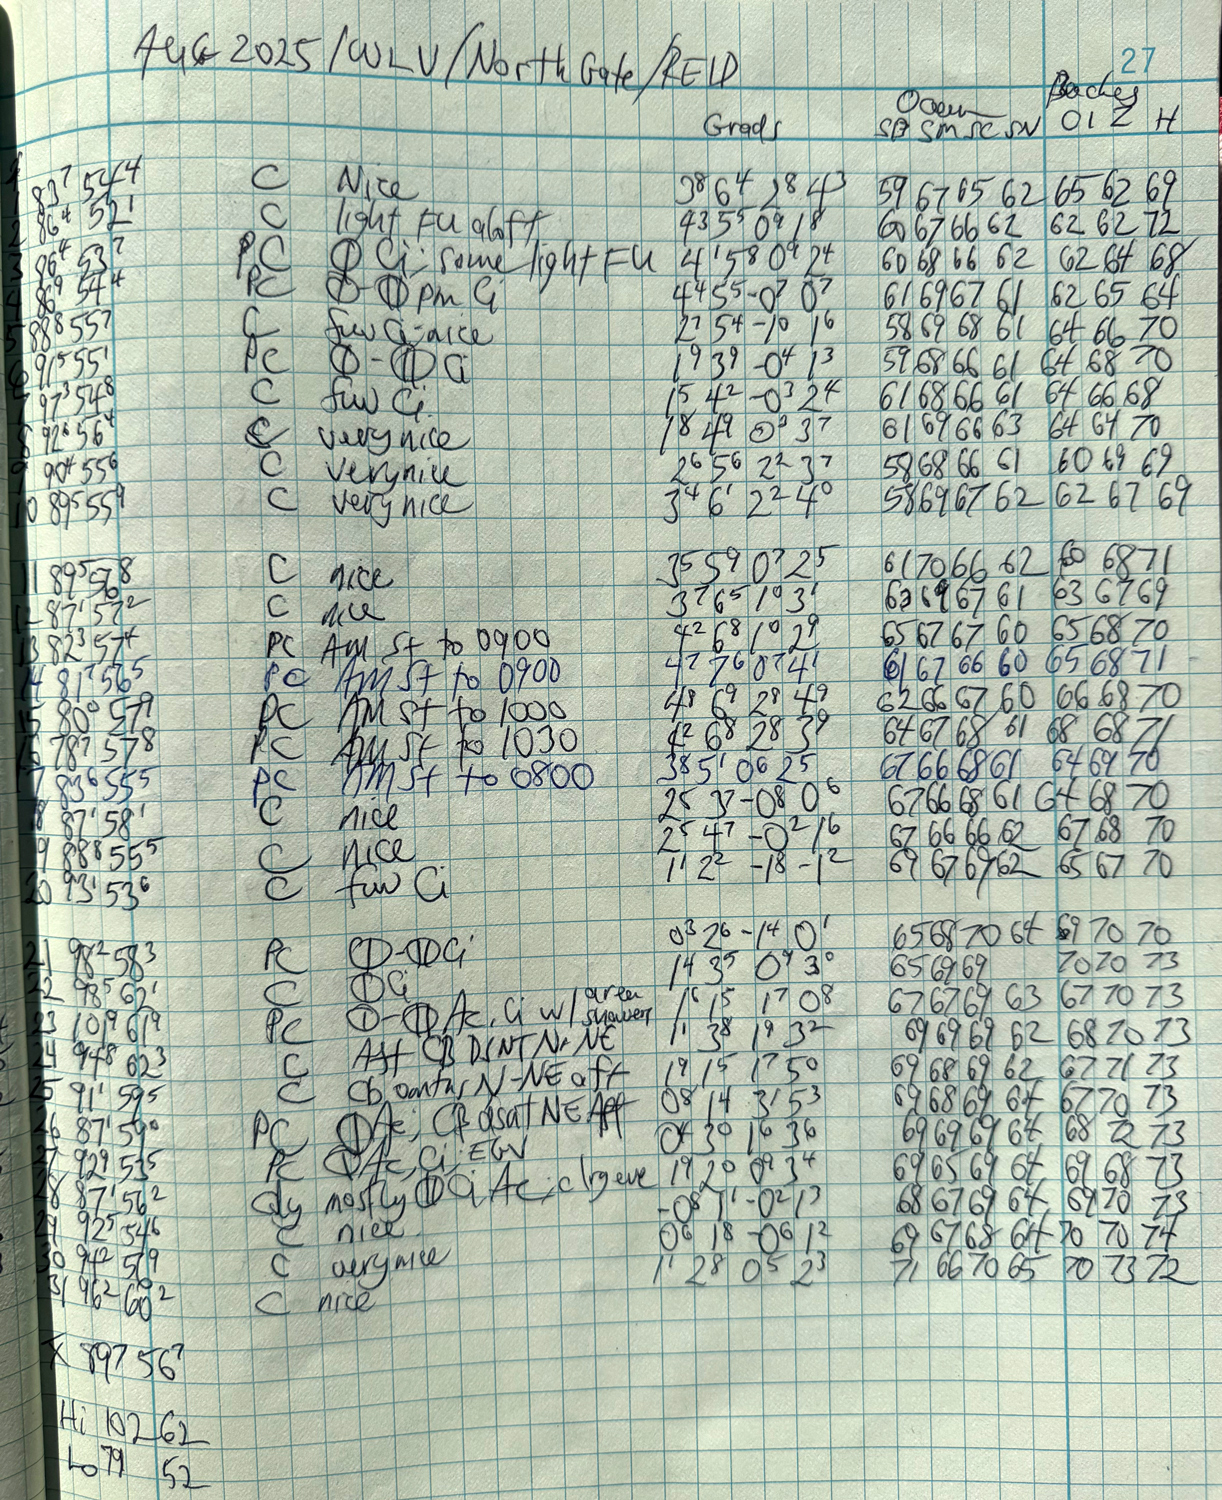 AUG 2025/WLV/North Gate/REID
27
Ocean Beaches
Grads SB SM SC SN OI Z H
83⁷ 54⁴ C Nice 3⁸ 6⁴ 2⁸ 4³ 59 67 65 62 65 62 69
2 86⁴ 52¹ C light FU aloft 4³ 5⁵ 0⁹ 1⁸ 60 67 66 62 62 62 72
3 86⁴ 53⁷ PC Ci; some light FU 4¹ 5⁸ 0⁹ 2⁴ 60 68 66 62 62 64 68
4 86⁹ 54⁴ PC pm Ci 4⁴ 5⁵ -0⁷ 0⁷ 61 69 67 61 62 65 64
5 88⁸ 55⁷ C few Ci-nice 2⁷ 5⁴ -1⁰ 1⁶ 58 69 68 61 64 66 70
6 91⁵ 55¹ PC Ci 1⁹ 3⁹ -0⁴ 1³ 59 68 66 61 64 68 70
97³ 54⁸ C few Ci. 1⁵ 4² -0³ 2⁴ 61 68 66 61 64 66 68
8 92⁶ 56⁴ C very nice 1⁸ 4⁹ 0⁹ 3⁷ 61 69 66 63 64 64 70
9 90⁴ 55⁶ C very nice 2⁶ 5⁶ 2² 3⁷ 58 68 66 61 60 69 69
10 89⁵ 55⁹ C very nice 3⁴ 6¹ 2² 4⁰ 58 69 67 62 62 67 69
11 89⁵ 56⁸ C nice 3⁵ 5⁹ 0⁷ 2⁵ 61 70 66 62 60 68 71
12 87¹ 57² C nice 3⁷ 6⁵ 1⁰ 3¹ 63 69 67 61 63 67 69
13 82³ 57⁴ PC AM St to 0900 4² 6⁸ 1⁰ 2⁹ 65 67 67 60 65 68 70
14 81⁷ 56⁵ PC AM St to 0900 4⁷ 7⁶ 0⁷ 4¹ 61 67 66 60 65 68 71
15 80⁰ 57⁹ PC AM St to 1000 4⁸ 6⁹ 2⁸ 4⁹ 62 66 67 60 66 68 70
16 78⁷ 57⁸ PC AM St to 1030 4² 6⁸ 2⁸ 3⁹ 64 67 68 61 68 68 71
7 83⁶ 55⁵ PC AM St to 0800 3⁸ 5¹ 0⁶ 2⁵ 67 66 68 61 64 69 70
8 87¹ 58¹ C nice 2⁵ 3⁷ -0⁸ 0⁶ 67 66 68 61 64 68 70
9 88⁸ 55⁵ C nice 2⁵ 4⁷ -0² 1⁶ 67 66 66 62 67 68 70
20 93¹ 53⁶ C few Ci 1¹ 2² -1⁸ -1² 69 67 69 62 65 67 70
21 98² 58³ PC Ci 0³ 2⁶ -1⁴ 0¹ 65 68 70 64 69 70 70
22 98⁵ 62¹ C Ci 1⁴ 3⁵ 0⁹ 3⁰ 65 69 69 70 70 73
23 101⁹ 61⁹ PC Ac, Ci w/ area showers 1⁶ 1⁵ 1⁷ 0⁸ 67 67 69 63 67 70 73
24 94⁸ 62³ C Aft CB DSNT N-NE 1¹ 3⁸ 1⁹ 3² 69 69 69 62 68 70 73
25 91¹ 59⁵ C Cb N-NE aft 1⁹ 1⁵ 1⁷ 5⁰ 69 68 69 62 67 71 73
26 87¹ 59⁰ PC Ac; CB dsnt NE Aft 0⁸ 1⁴ 3¹ 5³ 69 68 69 64 67 70 73
27 92⁹ 53⁵ PC Ac, Ci; EGV 0⁴ 3⁰ 1⁶ 3⁶ 69 69 69 64 68 72 73
28 87¹ 56² Cdy mostly Ci, Ac; clrg eve 1⁹ 2⁰ 0⁹ 3⁴ 69 65 69 64 69 68 73
29 92⁵ 54⁶ C nice -0⁸ 1¹ -0² 1³ 68 67 69 64 69 70 73
30 94² 57⁹ C very nice 0⁶ 1⁸ -0⁶ 1² 69 67 68 64 70 70 74
31 96² 60² C nice 1¹ 2⁸ 0⁵ 2³ 71 66 70 65 70 73 72
x̄ 89⁷ 56⁷
Hi 102 62
Lo 79 52